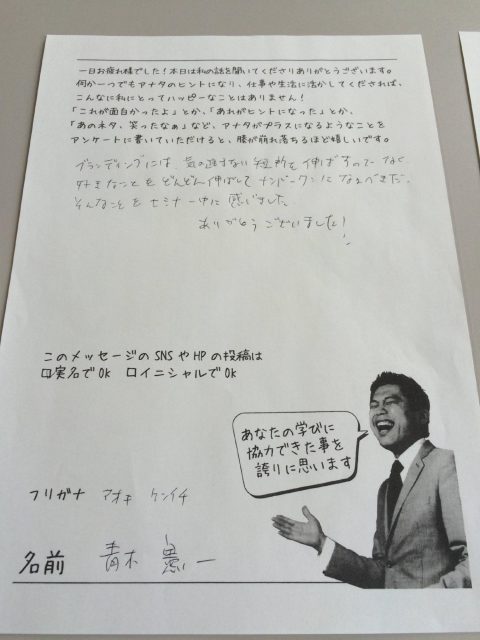 一日お疲れ様でした！本日は私の話を聞いてくださりありがとうございます。
何か一つでもアナタのヒントになり、仕事や生活に活かしてくだされば、
こんなに私にとってハッピーなことはありません！
「これが面白かったよ」とか、「あれがヒントになった」とか、
「あのネタ、笑ったなぁ」など、アナタがプラスになるようなことを
アンケートに書いていただけると、膝が崩れ落ちるほど嬉しいです。
ブランディングには、気の進まない短所を伸ばすのでなく
好きなことをどんどん伸ばしてナンバーワンになるべきだ。
そんなことをセミナー中に感じました。
ありがとうございました！
このメッセージのSNSやHPの投稿は
ロ実名でOK ロイニシャルでOK
あなたの学びに
協力できた事を
誇りに思います
フリガナ アオキ ケンイチ
名前 青木 憲一